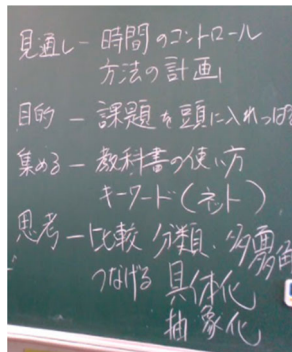 見通し－時間のコントロール
方法の計画
目的－課題を頭に入れっぱ
集める－教科書の使い方
キーワード(ネット)
思考－比較 分類、多角
つなげる 具体化
抽象化